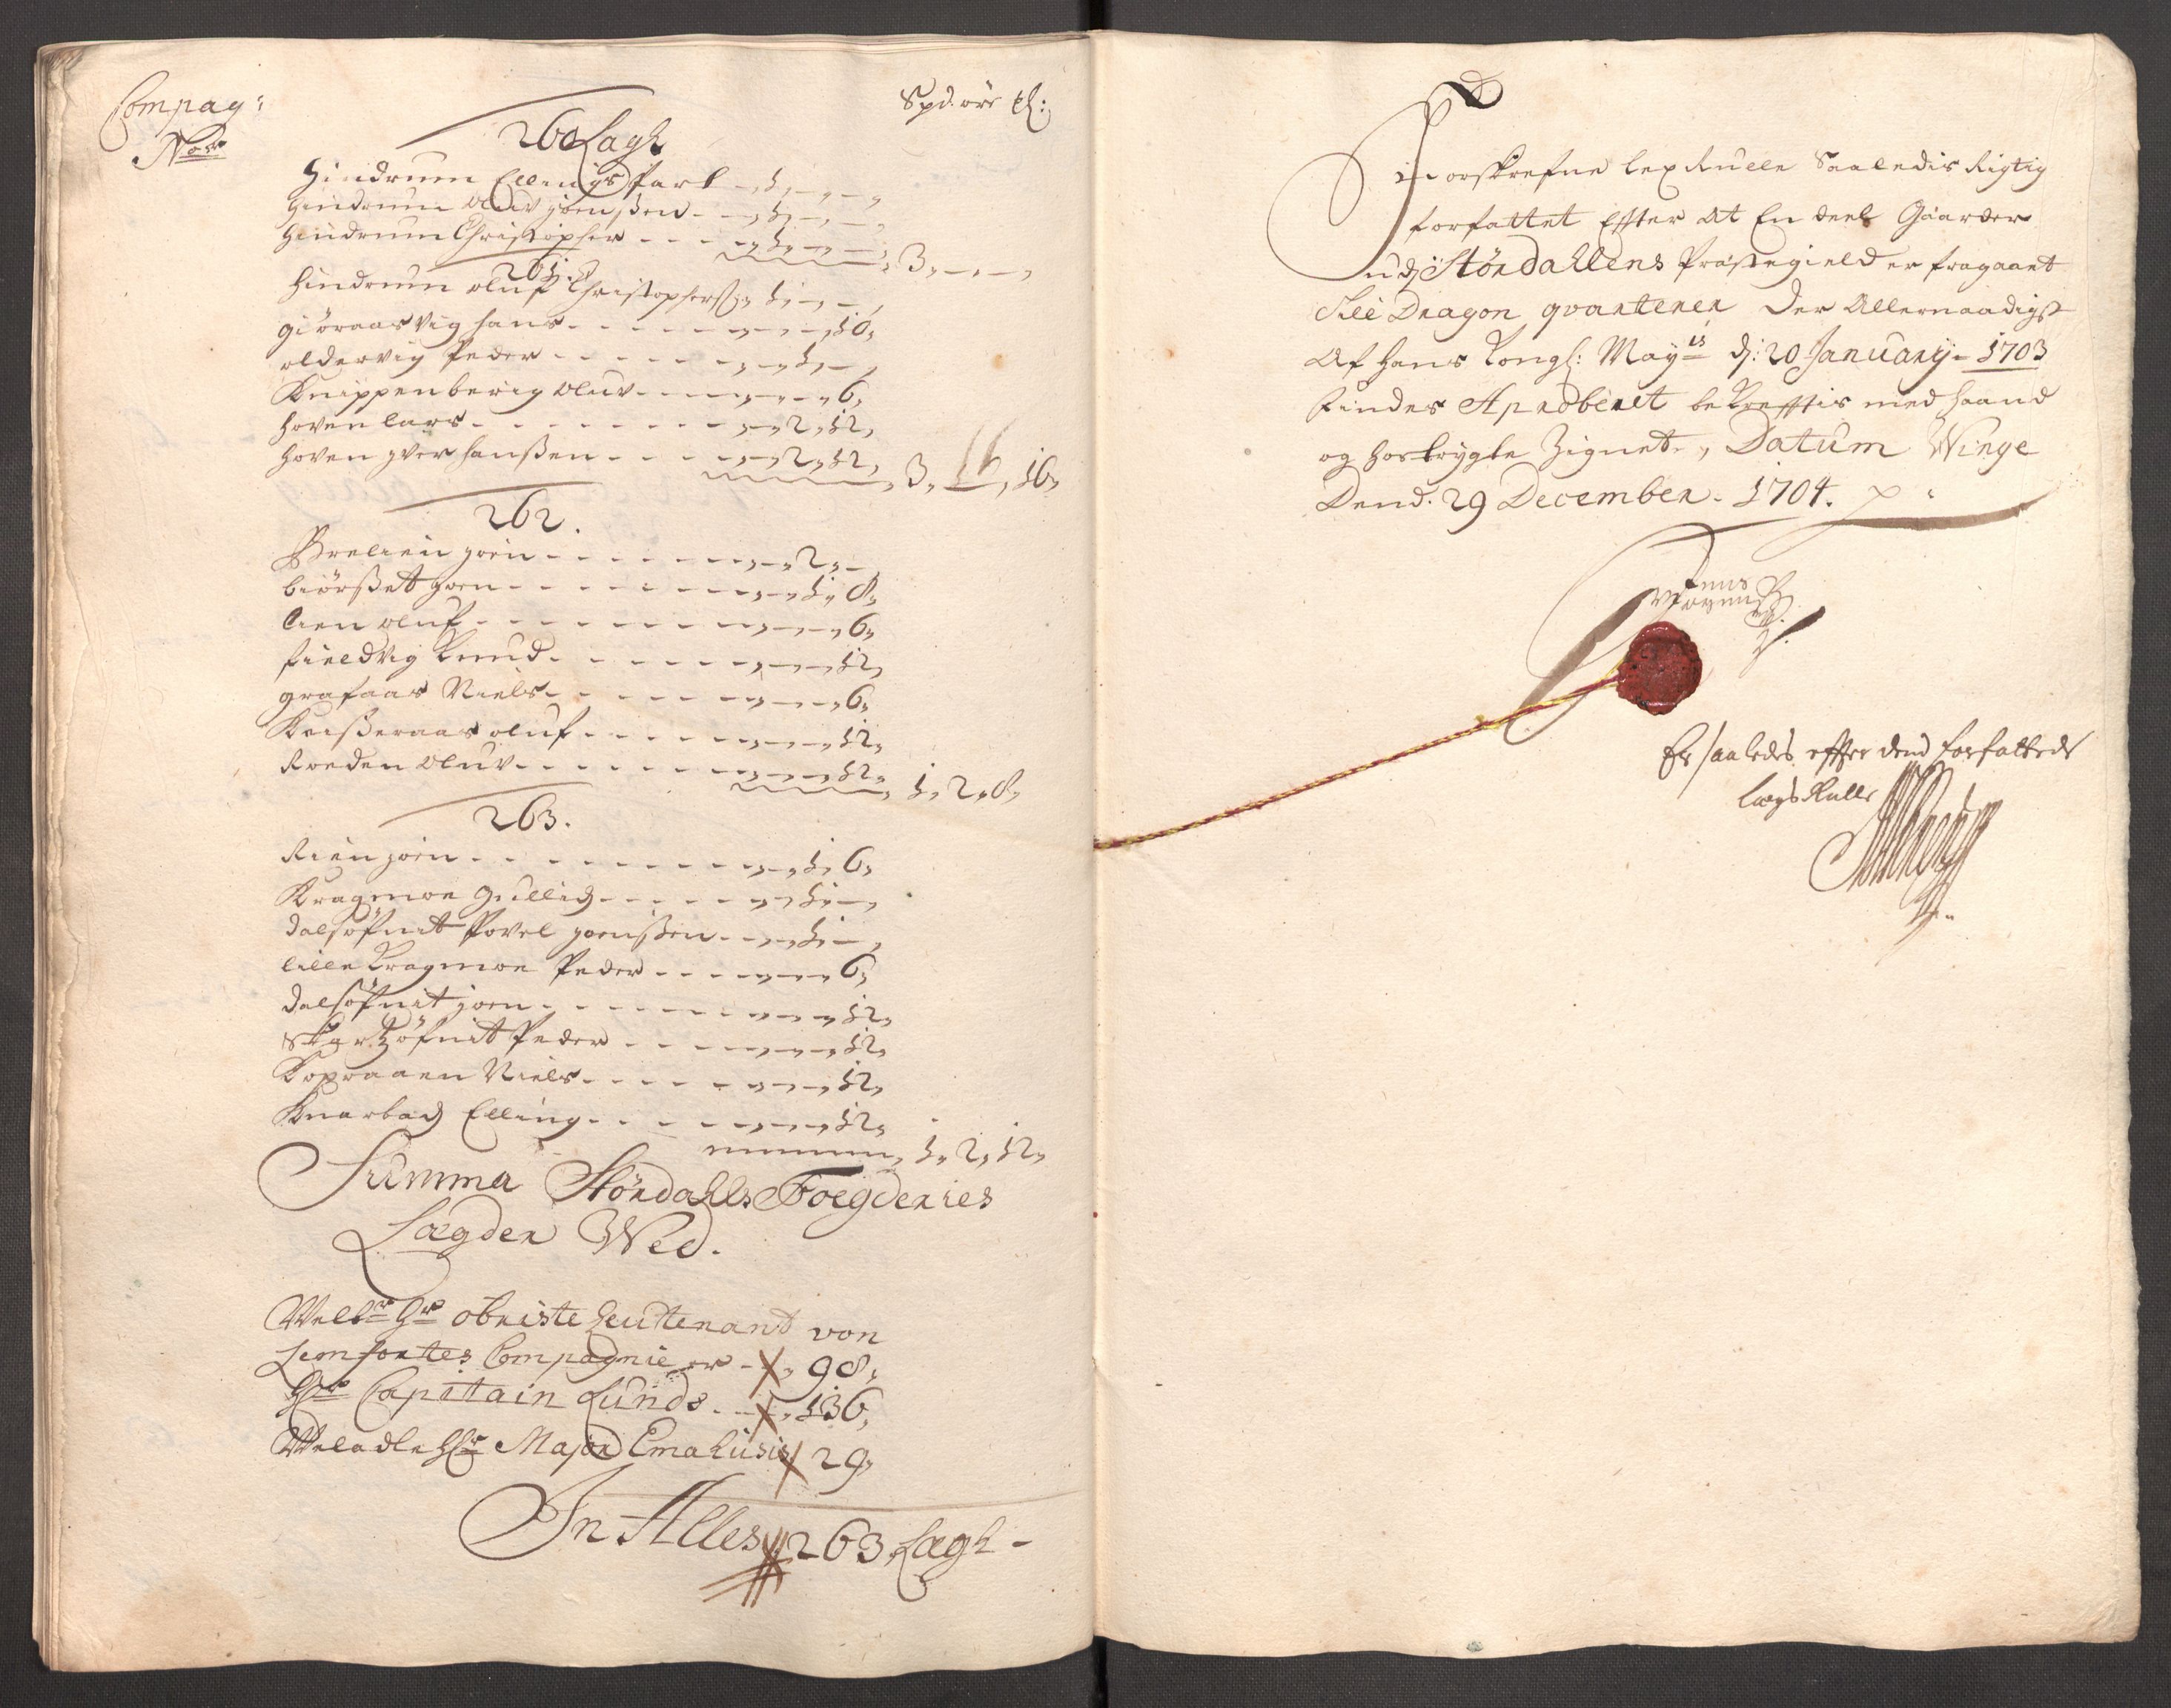 Compag:
No
Spd. öre
260 Lagh
Hindrum Ellings Part - , 1, - , - ,
Hindrum Oluv Joenßen - - , 1, - , - ,
Hindrum Christopher - - - - , 1, - , - ,
, 3, - , - ,
261.
Hindrum Oluf Christophers: 1, - , - ,
giöraasvig Hans - - - - - , - , - , 10,
oldervig Peder - - - - - , - , 1, - ,
Knippenberig Oluv - - - - , - , - , 6,
Hoven Lars - - - - - - , - , 2, 12,
Hoven Iver Hanßen - - - , - , 2, 12,
, 3, 16,
262.
Brelien Joen - - - - - - , - , 2, - ,
biörßet Joen - - - - - - , - , 1, 8,
Lien Oluf - - - - - - - , - , - , 6,
fieldvig Knud - - - - - , - , - , 12,
grafaas Niels - - - - - , - , - , 6,
Kaißeraas Oluf - - - - , - , - , 12,
Roeden Oluv - - - - - - , - , - , 12,
, 1, 2, 8,
263.
Lien Joen - - - - - - - , - , 1, 6,
Kragmoe Gullich - - - - , - , 1, - ,
dalsöfnit Povel Joenßen - - , - , 1, - ,
lille Kragmoe Peder - - - , - , - , 6,
dalsöfnit Joen - - - - - , - , - , 12,
Peder - - - - , - , - , 12,
Kopraaen Niels - - - - - , - , - , 12,
Knarbach Elling - - - - - , - , - , 12,
, 1, 2, 12,
Summa Stördahls Foegderies
Lægder Wed.
Welbr Hr obriste Leutenant von
Lemfortes Compagnie er - , 98,
Hr Capitain Lunds - - , 136,
Weledle Hr Major Emahusis 29,
In Alles 263 Lagh -
Forskrefne Lex Rulle Saaledis Rigtig
forfattet Effter At En deel Gaarder
udj Stördallens Præstegield er fragaaet
Till Dragon qvarterer Der Allernaadigst
Af Hans Kongl: Mayts dj: 20 January - 1703
findes Aproberet bekrefftis med Haand
og hostrygte Zignet, Datum Winge
Dend. 29 December - 1704.
Jens
Er saaledes effter dend forfattede
Lægs Rulle